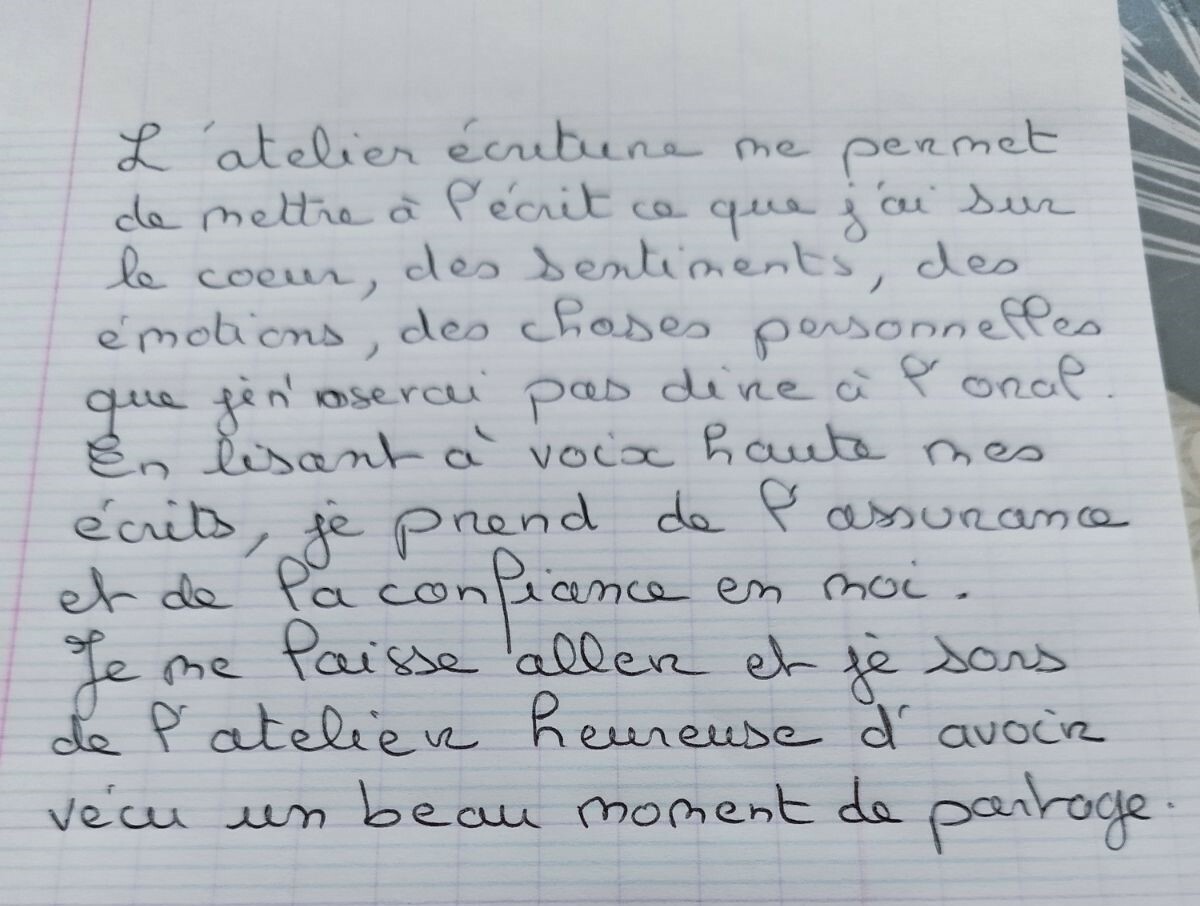 L'atelier écriture me permet
de mettre à l'écrit ce que j'ai sur
le coeur, des sentiments, des
émotions, des choses personnelles
que je n'oserai pas dire à l'oral.
En lisant à voix haute mes
écrits, je prend de l'assurance
et de la confiance en moi.
Je me laisse aller et je sors
de l'atelier heureuse d'avoir
vécu un beau moment de partage.